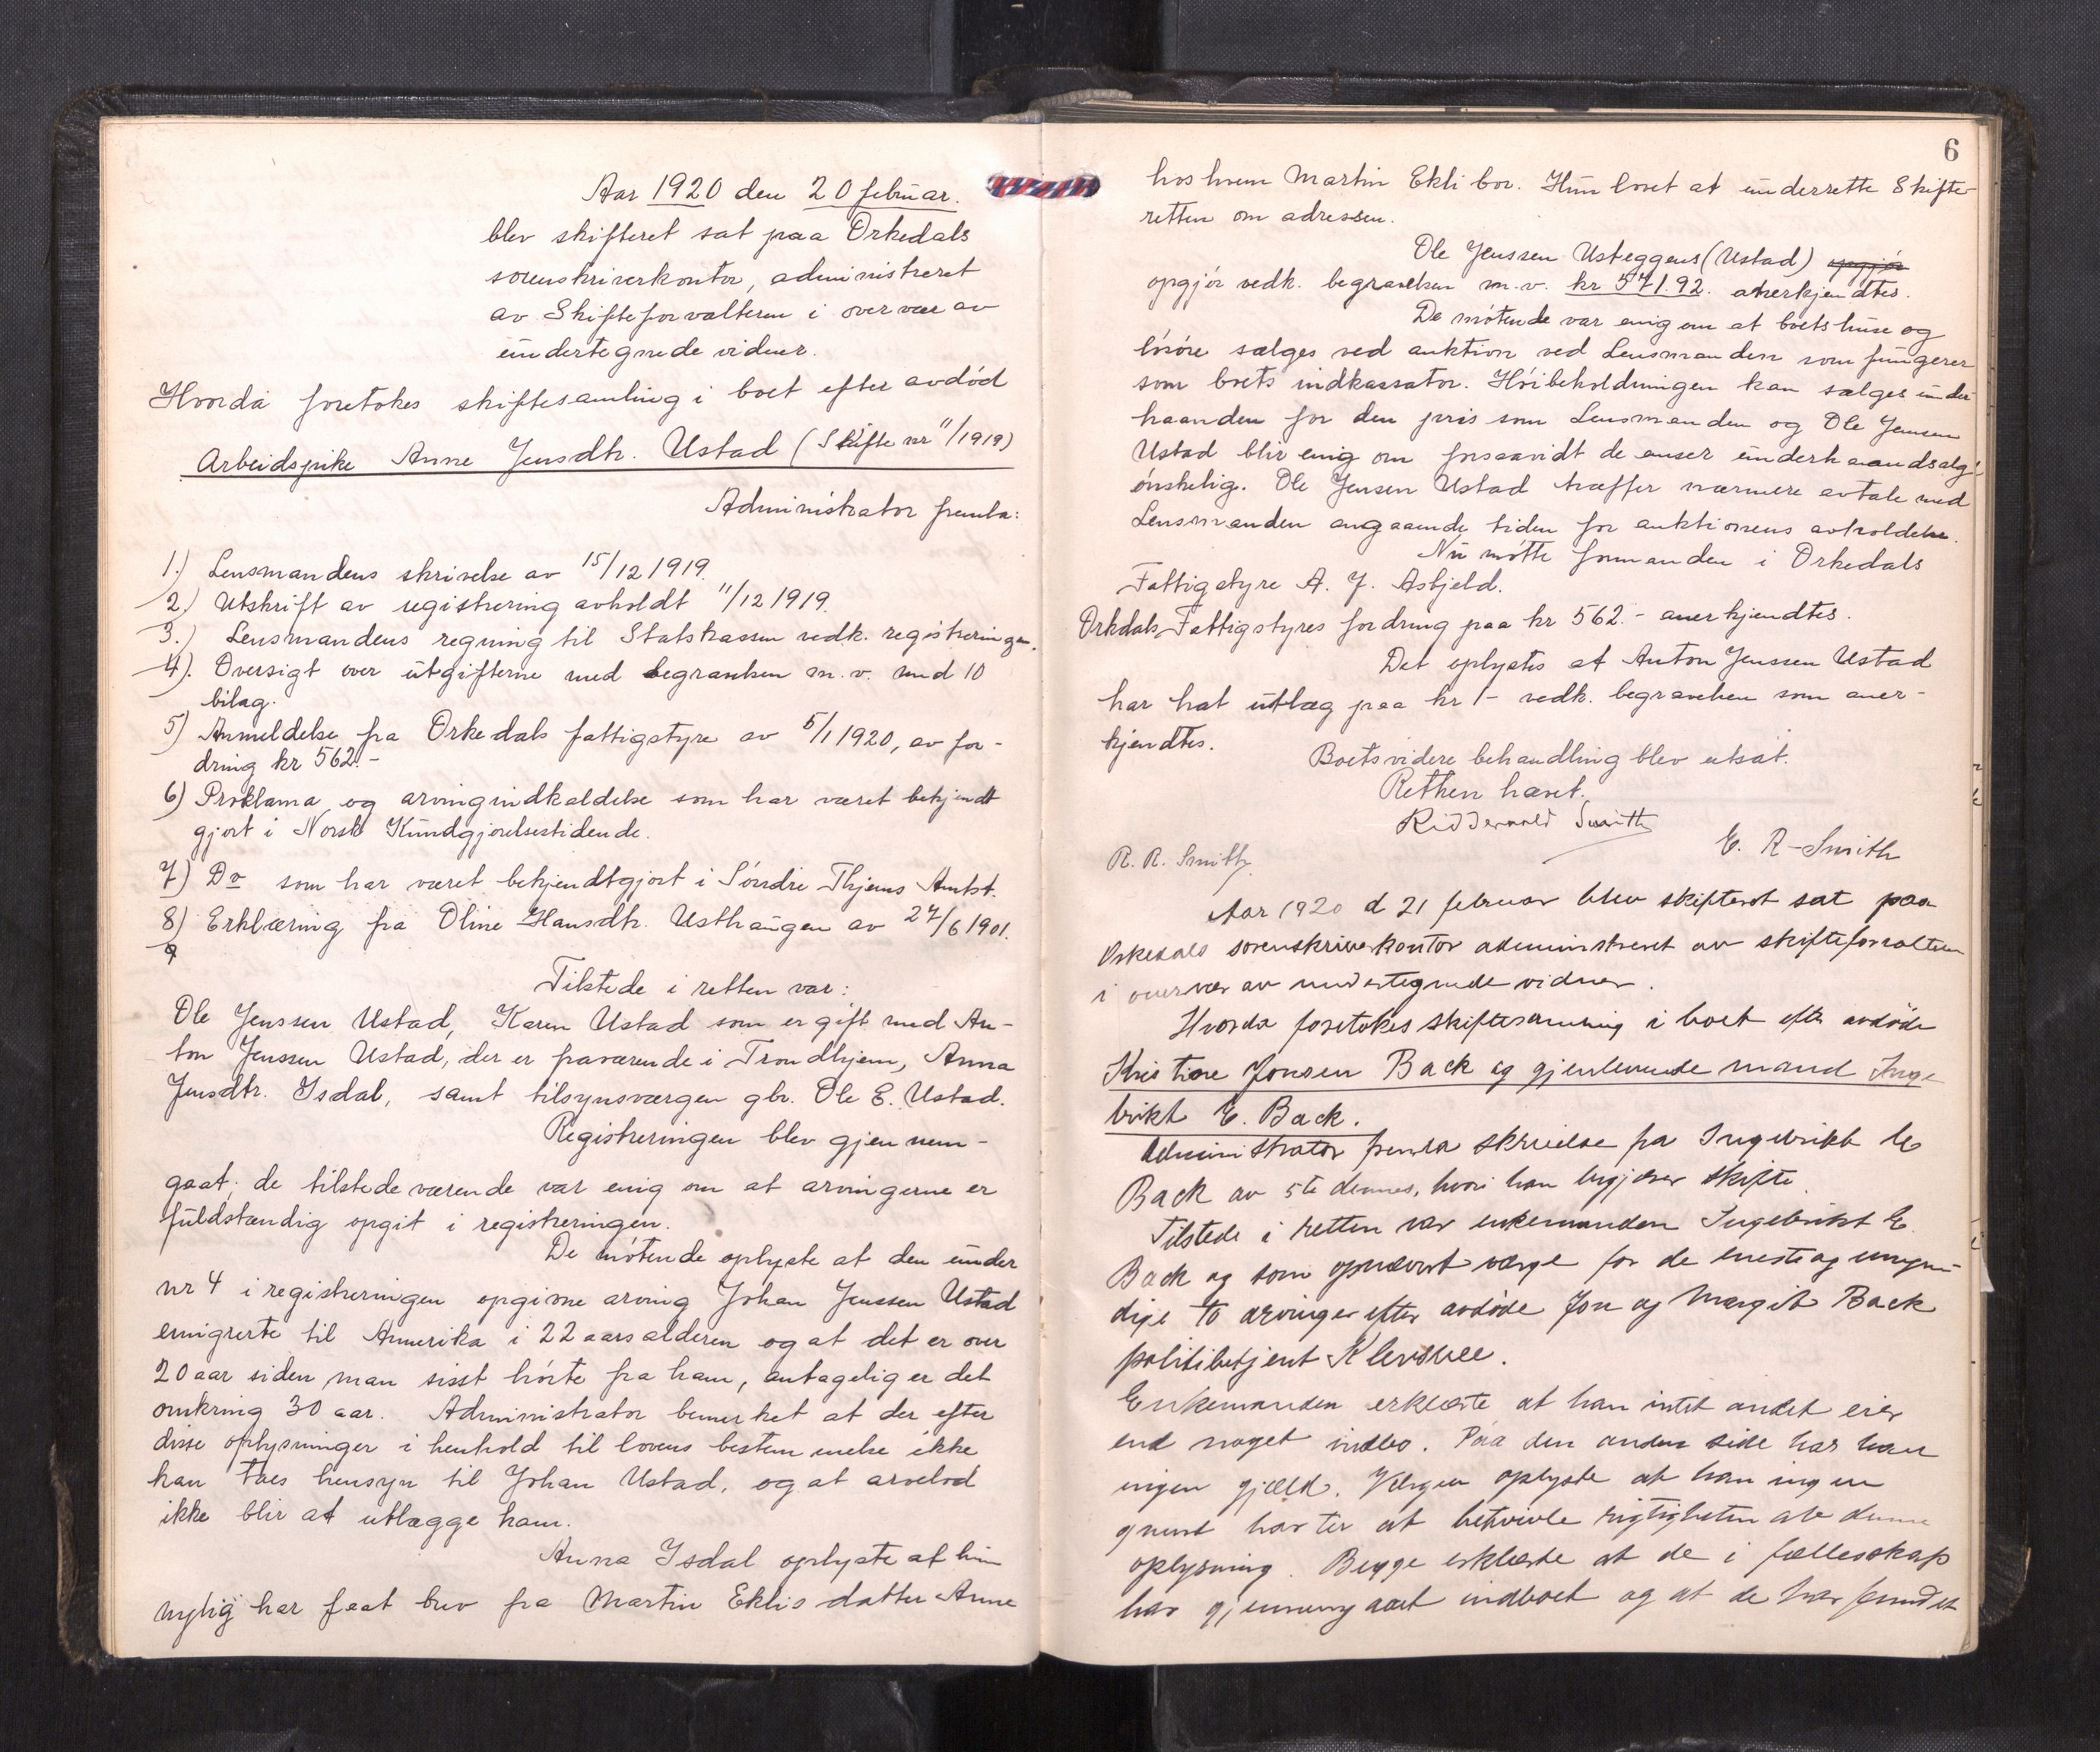 Aar 1920 den 20 februar.
blev skifteret sat paa Orkedals
sorenskriverkontor, administreret
av Skifteforvalteren i overvær av
undertegnede vidner.
Hvorda foretokes skiftesamling i boet efter avdød
Arbeidspike Anne Jensdtr. Ustad (Skifte nr 11/1919)
Administrator fremla:
1.) Lensmandens skrivelse av 15/12 1919.
2.) Utskrift av registrering avholdt 11/12 1919.
3.) Lensmandens regning til Statskassen vedk. registreringen.
4). Oversigt over utgifterne med begravelsen m.v. med 10
bilag.
5) Anmeldelse fra Orkedals fattigstyre av 5/1 1920, av for-
dring kr 562.-
6) Proklama og arvingindkaldelse som har været bekjendt
gjort i Norsk Kundgjørelsestidende.
7) Do som har været bekjendtgjort i Søndre Thjems Amtst.
8) Erklæring fra Oline Hansdtr. Usthaugen av 27/6 1901.
9
Tilstede i retten var:
Ole Jenssen Ustad, Karen Ustad som er gift med An-
ton Jenssen Ustad, der er fraværende i Trondhjem, Anna
Jensdtr. Isdal, samt tilsynsværgen gbr. Ole E. Ustad.
Registreringen blev gjennem-
gaat; de tilstedeværende var enig om at arvingerne er
fuldstændig opgit i registreringen.
De møtende oplyste at den under
nr 4 i registreringen opgivne arving Johan Jenssen Ustad
emigrerte til Amerika i 22 aars alderen og at det er over
20 aar siden man sisst hørte fra ham, antagelig er det
omkring 30 aar. Administrator bemerket at der efter
disse oplysninger i henhold til lovens bestemmelse ikke
kan taes hensyn til Johan Ustad, og at arvelod
ikke blir at utlægge ham.
Anna Isdal oplyste at hun
nylig har faat brev fra Martin Eklis datter Anne
6
hos hvem Martin Ekli bor. Hun lovet at underrette Skifte-
retten om adressen.
Ole Jenssen Usteggens (Ustad) opgjør
opgjør vedk. begravelsen m.v. kr 571.92. anerkjendtes.
De møtende var enig om at boets huse og
løsøre sælges ved auktion ved Lensmanden som fungerer
som boets indkassator. Høibeholdningen kan sælges under
haanden for den pris som Lensmanden og Ole Jensen
Ustad blir enig om forsaavidt de anser underhaandsalg
ønskelig. Ole Jensen Ustad træffer nærmere avtale med
Lensmanden angaaende tiden for auktionens avholdelse.
Nu møtte formanden i Orkedals
Fattigstyre A. J. Asbjeld.
Orkdals Fattigstyres fordring paa kr 562.- anerkjendtes.
Det oplystes at Anton Jenssen Ustad
har hat utlæg paa kr 1- vedk. begravelsen som aner-
kjendtes.
Boets videre behandling blev utsat.
Retten hævet.
Ridderwold Smith
R. R. Smith. E. R-Smith
Aar 1920 d 21 februar blev skifteret sat paa
Orkedals sorenskriverkontor administreret av skifteforvalteren
i overvær av undertegnede vidner.
Hvorda foretokes skiftesamling i boet efter avdøde
Kristine Jonsen Back og gjenlevende mand Inge
brikt E. Back.
Administrator fremla skrivelse fra Ingebrikt E
Back av 5te dennes, hvori han begjærer skifte.
Tilstede i retten var enkemanden Ingebrikt E.
Back og som opnævnt værge for de eneste og umyn-
dige to arvinger efter avdøde Jon og Margit Back
politibetjent
Enkemanden erklærte at han intet andet eier
end noget indbo. Paa den anden side har han
ingen gjæld. Værgen oplyste at han ingen
grund har til at betvivle rigtigheten av denne
oplysning. Begge erklærte at de i fællesskap
har gjennemgaaet indboet og at de har fundet